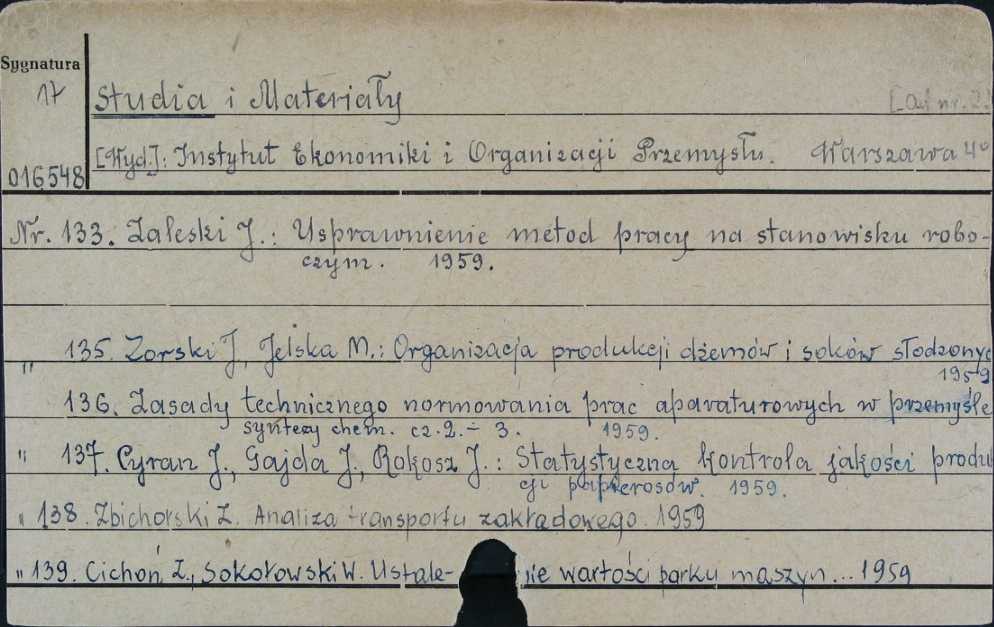 Sygnatura
17
Studia i Materiały [Od nr. 2.]
[Wyd.]: Instytut Ekonomiki i Organizacji Przemysłu. Warszawa 4°
016548
Nr. 133. Zaleski J.: Usprawnienie metod pracy na stanowisku robo-
czym. 1959.
" 135. Zorski J, Jelska M.: Organizacja produkcji dżemów i soków słodzonyc
1959
136. Zasady technicznego normowania prac aparaturowych w przemyśle
syntezy chem. cz. 2. - 3. 1959.
" 137. Cyran J., Gajda J., Rokosz J.: Statystyczna kontrola jakości produ
cji papierosów. 1959.
" 138. Zbichorski Z. Analiza transportu zakładowego. 1959
" 139. Cichoń Z., Sokołowski W. Ustale- nie wartości parku maszyn... 1959